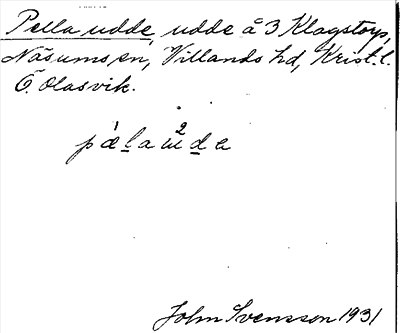 Pella udde, udde å 3 Klagstorp,
Näsums sn, Villands hd, Krist. l.
Ö. Olasvik.
pæ̀la ɯ²dɘ
John Svensson 1931